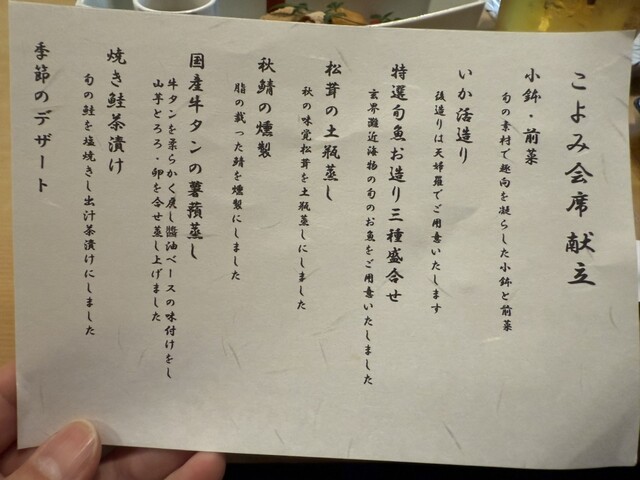 こよみ会席 献立
小鉢・前菜
旬の素材で趣向を凝らした小鉢と前菜
いか活造り
後造りは天婦羅でご用意いたします
特選旬魚お造り三種盛合せ
玄界灘近海物の旬のお魚をご用意いたしました
松茸の土瓶蒸し
秋の味覚松茸を土瓶蒸しにしました
秋鯖の燻製
脂の載った鯖を燻製にしました
国産牛タンの薯蕷蒸し
牛タンを柔らかく炊し醤油ベースの味付けをし
山芋とろろ・卵を合せ蒸し上げました
焼き鮭茶漬け
旬の鮭を塩焼きし出汁茶漬けにしました
季節のデザート